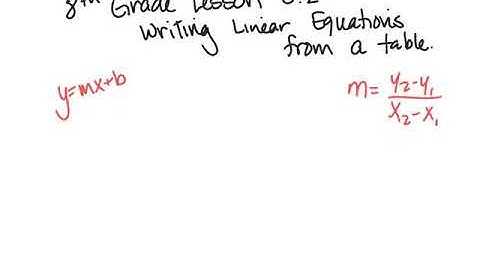 8th Grade Lesson
Writing Linear Equations
from a table.
y=mx+b
m= y₂-y₁
x₂-x₁